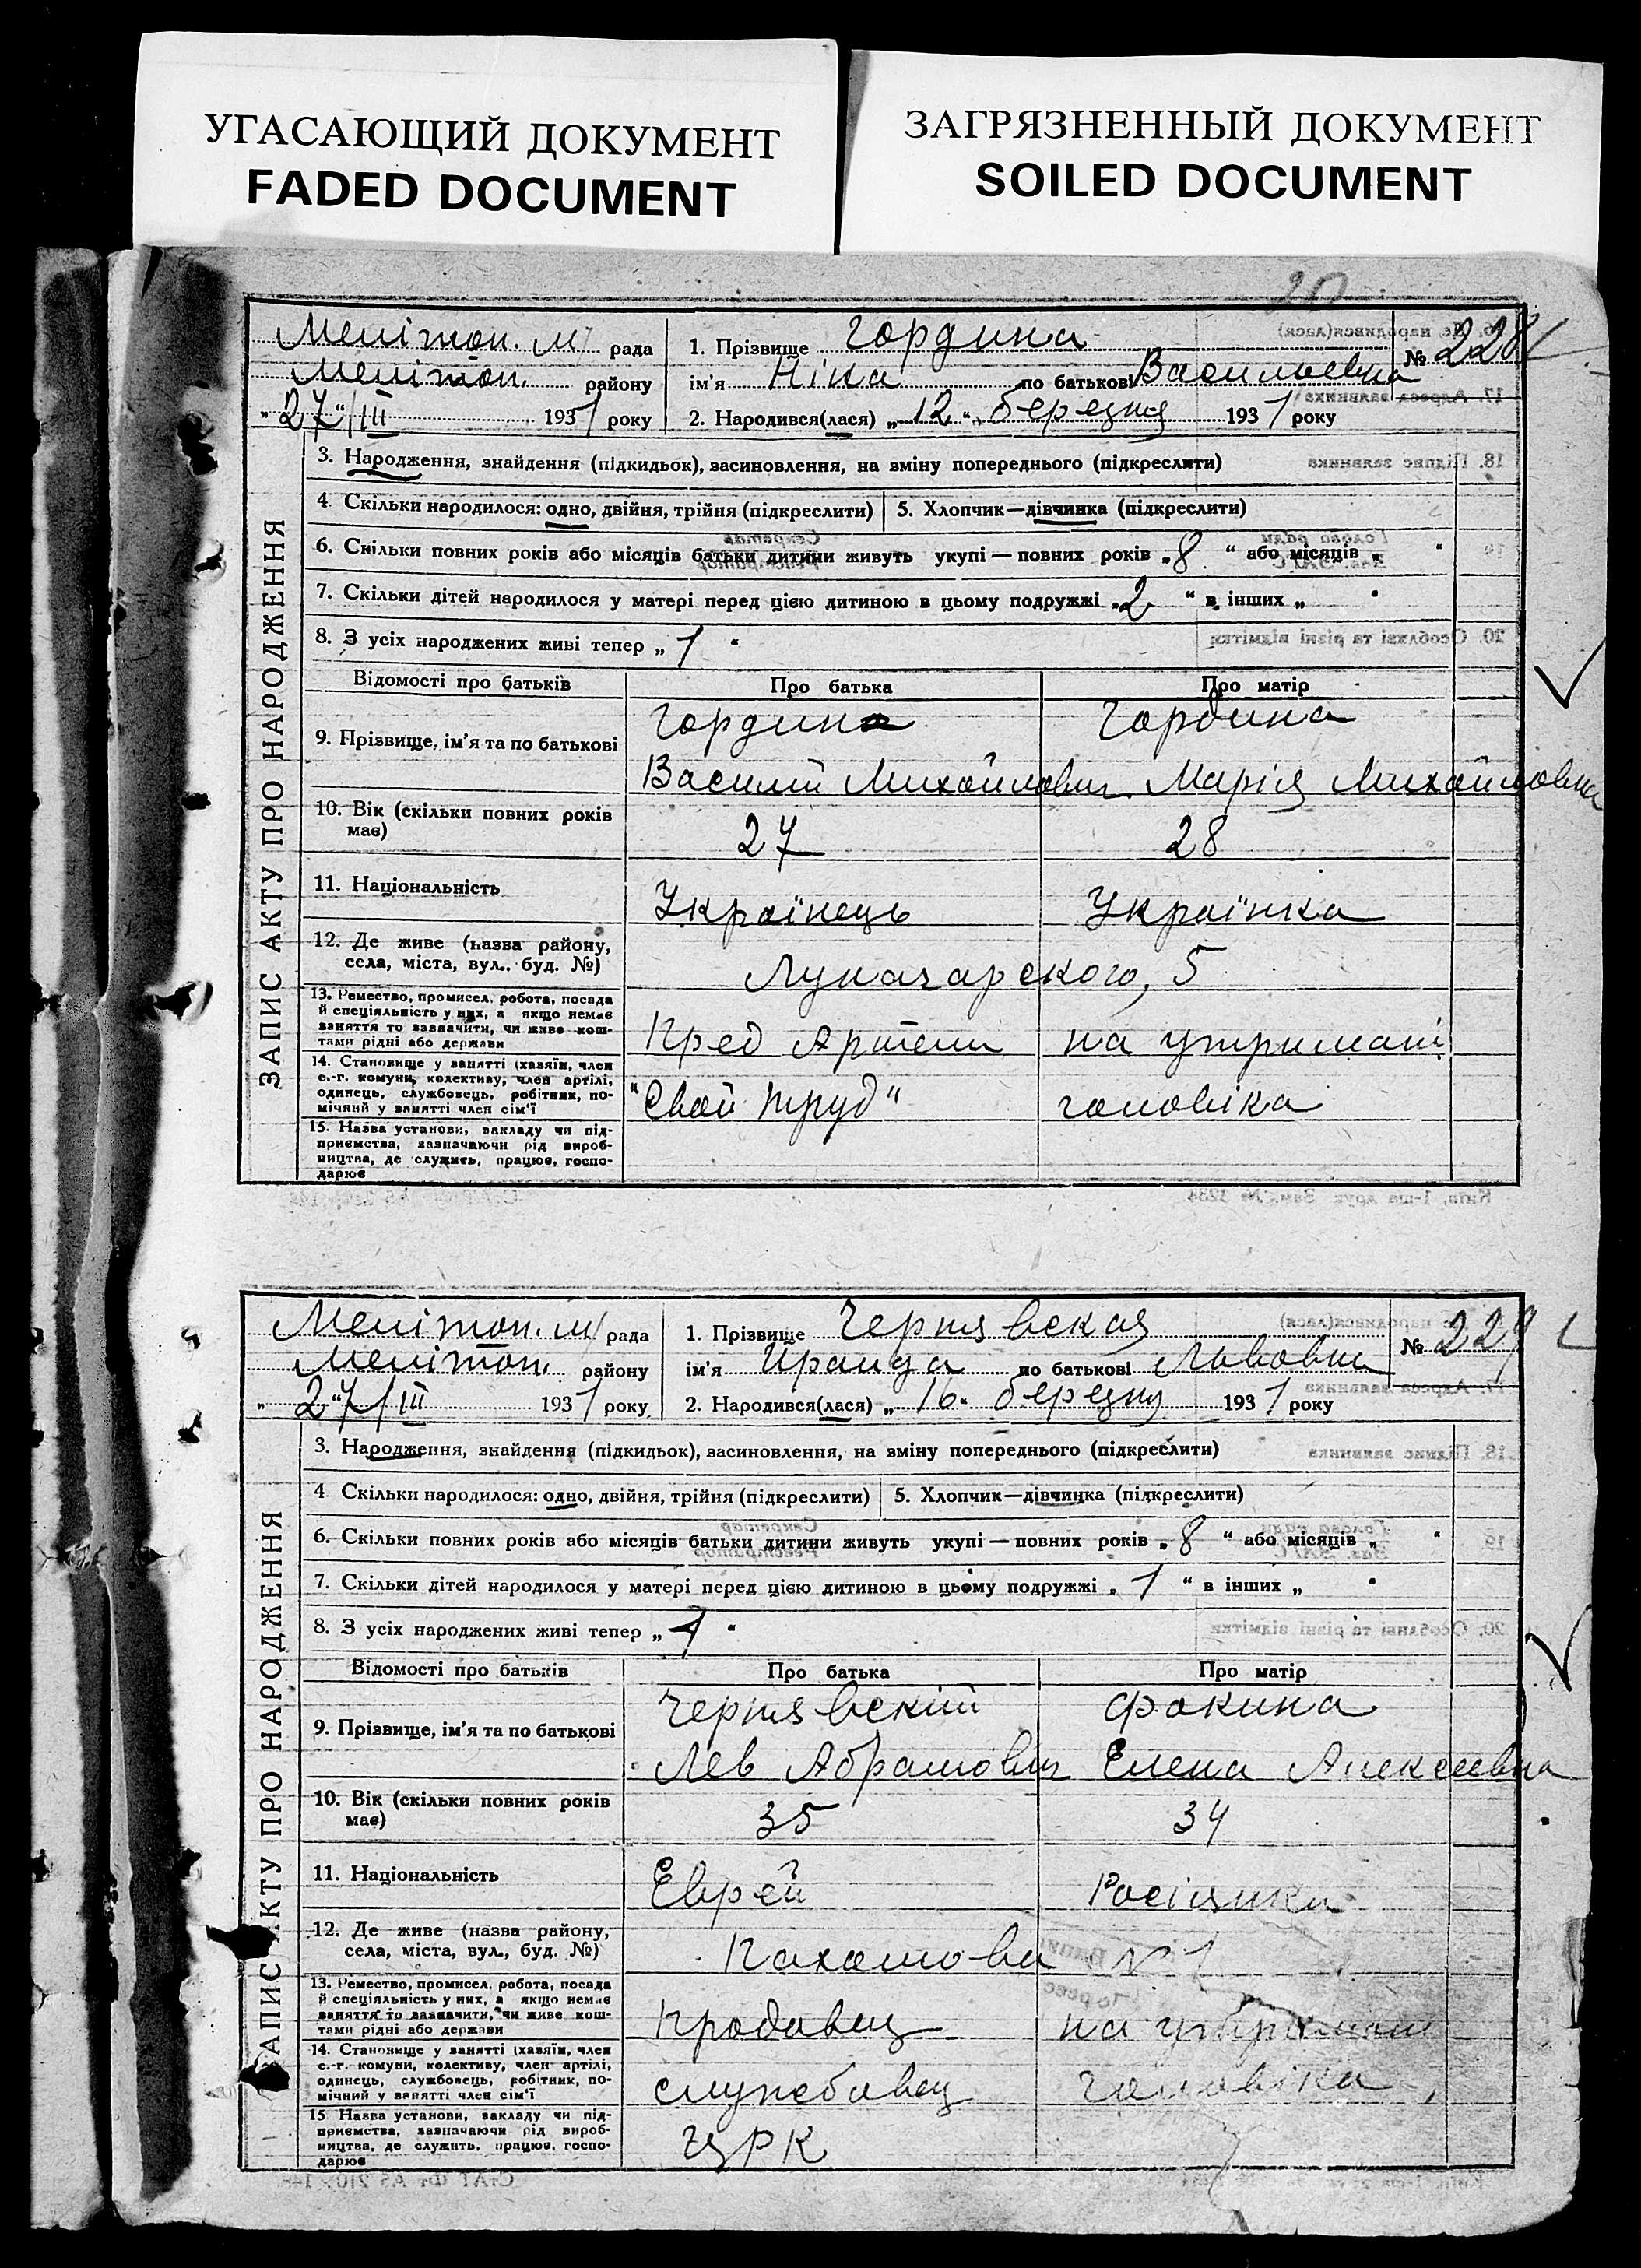 УГАСАЮЩИЙ ДОКУМЕНТ
FADED DOCUMENT
ЗАГРЯЗНЕННЫЙ ДОКУМЕНТ
SOILED DOCUMENT
20
ЗАПИС АКТУ ПРО НАРОДЖЕННЯ
Меліտоп. м/ рада
Меліտоп. району
„27“/III 1931 року
1. Прізвище Гордина
№ 228
ім'я Ніка по батькові Васильевна
2. Народився(лася) „12“ березня 1931 року
3. Народження, знайдення (підкидьок), засиновлення, на зміну попереднього (підкреслити)
4. Скільки народилося: одно, двійня, трійня (підкреслити) 5. Хлопчик—дівчинка (підкреслити)
6. Скільки повних років або місяців батьки дитини живуть укупі — повних років „8“ або місяців „ “
7. Скільки дітей народилося у матері перед цією дитиною в цьому подружжі „2“ в інших „ “
8. З усіх народжених живі тепер „1“
Відомості про батьків Про батька Про матір
9. Прізвище, ім'я та по батькові
Гордина Гордина
Василий Михайлович Марія Михайловна
10. Вік (скільки повних років має) 27 28
11. Національність Українець Українка
12. Де живе (назва району, села, міста, вул., буд. №) Луначарского, 5
13. Ремество, промисел, робота, посада й спеціяльність у них, а якщо немає заняття то зазначити, чи живе коштами рідні або держави
Пред Артели на утримані
14. Становище у занятті (хазяїн, член с.-г. комуни, колективу, член артілі, одинець, службовець, робітник, помічний у занятті член сім'ї
"Свой труд" чоловіка
15. Назва установи, закладу чи підприємства, зазначаючи рід виробництва, де служить, працює, господарює
ЗАПИС АКТУ ПРО НАРОДЖЕННЯ
Мелітоп. м/ рада
Мелітоп. району
„27“/III 1931 року
1. Прізвище Чернявская
№ 229
ім'я Ираида по батькові Львовна
2. Народився(лася) „16“ березня 1931 року
3. Народження, знайдення (підкидьок), засиновлення, на зміну попереднього (підкреслити)
4 Скільки народилося: одно, двійня, трійня (підкреслити) 5. Хлопчик—дівчинка (підкреслити)
6. Скільки повних років або місяців батьки дитини живуть укупі — повних років „8“ або місяців „ “
7. Скільки дітей народилося у матері перед цією дитиною в цьому подружжі „1“ в інших „ “
8. З усіх народжених живі тепер „1“
Відомості про батьків Про батька Про матір
9. Прізвище, ім'я та по батькові
Чернявский Фокина
Лев Абрамович Елена Алексеевна
10. Вік (скільки повних років має) 35 34
11. Національність Еврей Росіянка
12. Де живе (назва району, села, міста, вул., буд. №) №1
13. Ремество, промисел, робота, посада й спеціяльність у них, а якщо немає заняття то зазначити, чи живе коштами рідні або держави
продавец на утримані
14. Становище у занятті (хазяїн, член с.-г. комуни, колективу, член артілі, одинець, службовець, робітник, помічний у занятті член сім'ї
службовец чоловіка
15 Назва установи, закладу чи підприємства, зазначаючи рід виробництва, де служить, працює, господарює
ЦРК